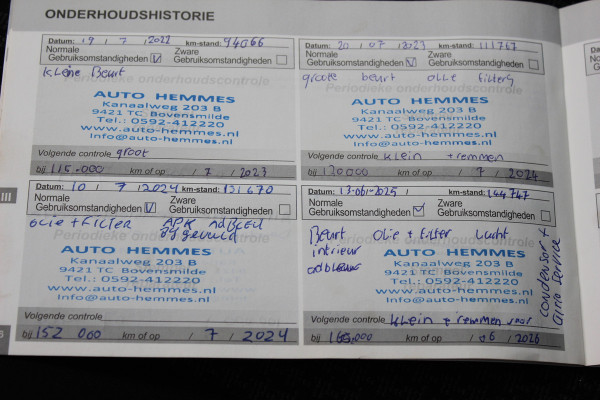 ONDERHOUDSHISTORIE
Datum: 19 / 7 / 2022 km-stand: 94066
Normale Gebruiksomstandigheden Zware Gebruiksomstandigheden
kleine Beurt
Periodieke onderhoudscontrole
AUTO HEMMES
Kanaalweg 203 B
9421 TC Bovensmilde
Tel.: 0592-412220
www.auto-hemmes.nl
Info@auto-hemmes.nl
Volgende controle groot
bij 115.000 km of op / 7 / 2023
Datum: 20 / 07 / 2023 km-stand: 111767
Normale Gebruiksomstandigheden Zware Gebruiksomstandigheden
groote beurt olie filters
Periodieke onderhoudscontrole
AUTO HEMMES
Kanaalweg 203 B
9421 TC Bovensmilde
Tel.: 0592-412220
www.auto-hemmes.nl
Info@auto-hemmes.nl
Volgende controle klein + remmen
bij 120000 km of op / 7 / 2024
III
Datum: 10 / 7 / 2024 km-stand: 131670
Normale Gebruiksomstandigheden Zware Gebruiksomstandigheden
olie + Filter APK AdBlue
bijgevuld
AUTO HEMMES
Kanaalweg 203 B
9421 TC Bovensmilde
Tel.: 0592-412220
www.auto-hemmes.nl
Info@auto-hemmes.nl
Volgende controle
bij 152 000 km of op / 7 / 2024
Datum: 13-06-2025 km-stand: 144747
Normale Gebruiksomstandigheden Zware Gebruiksomstandigheden
Beurt olie + filter Lucht
interieur
adblue
condensor +
airco service
AUTO HEMMES
Kanaalweg 203 B
9421 TC Bovensmilde
Tel.: 0592-412220
www.auto-hemmes.nl
Info@auto-hemmes.nl
Volgende controle klein + remmen voor
bij km of op / 06 / 2026